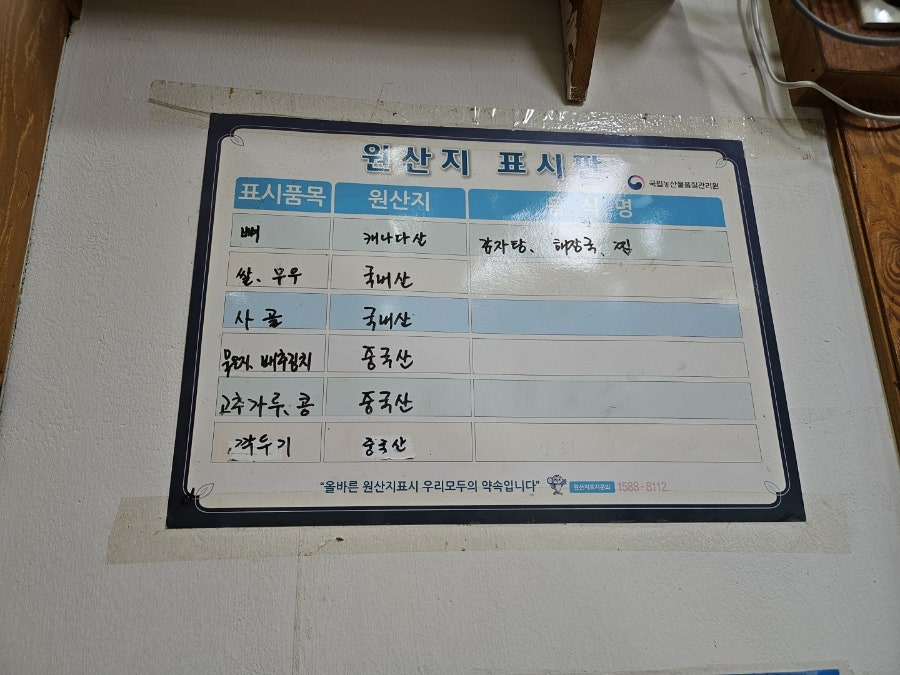 원산지 표시판
국립농산물품질관리원
표시품목 원산지 음식명
뼈 캐나다산 감자탕、해장국、찜
쌀、무우 국내산
사골 국내산
묵은지、배추김치 중국산
고추가루、콩 중국산
깍두기 중국산
“올바른 원산지표시 우리모두의 약속입니다” 원산지표시문의 1588-8112